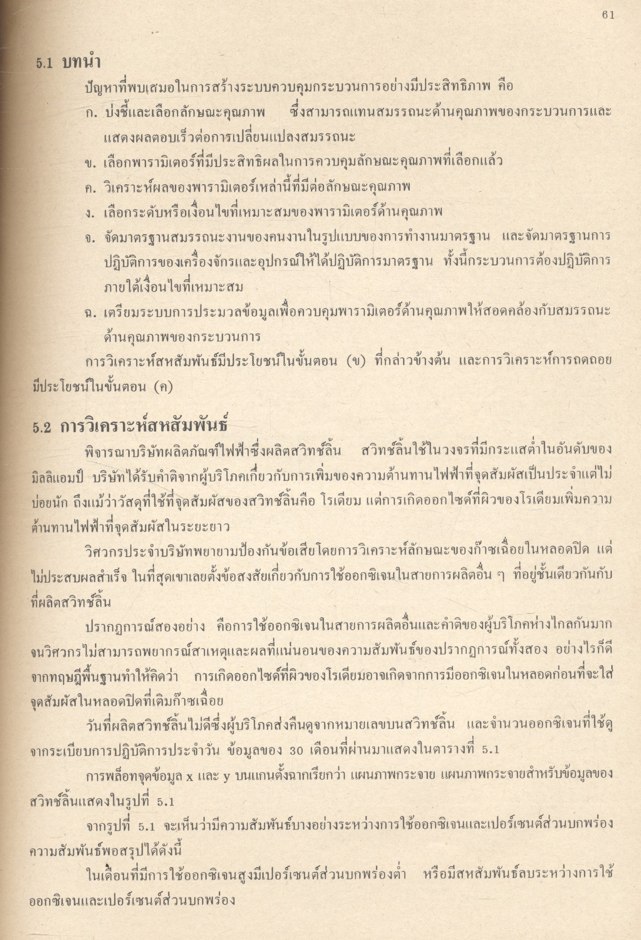 61
5.1 บทนำ
ปัญหาที่พบเสมอในการสร้างระบบควบคุมกระบวนการอย่างมีประสิทธิภาพ คือ
ก. บ่งชี้และเลือกลักษณะคุณภาพ ซึ่งสามารถแทนสมรรถนะด้านคุณภาพของกระบวนการและ
แสดงผลตอบเร็วต่อการเปลี่ยนแปลงสมรรถนะ
ข. เลือกพารามิเตอร์ที่มีประสิทธิผลในการควบคุมลักษณะคุณภาพที่เลือกแล้ว
ค. วิเคราะห์ผลของพารามิเตอร์เหล่านี้ที่มีต่อลักษณะคุณภาพ
ง. เลือกระดับหรือเงื่อนไขที่เหมาะสมของพารามิเตอร์ด้านคุณภาพ
จ. จัดมาตรฐานสมรรถนะงานของคนงานในรูปแบบของการทำงานมาตรฐาน และจัดมาตรฐานการ
ปฏิบัติการของเครื่องจักรและอุปกรณ์ให้ได้ปฏิบัติการมาตรฐาน ทั้งนี้กระบวนการต้องปฏิบัติการ
ภายใต้เงื่อนไขที่เหมาะสม
ฉ. เตรียมระบบการประมวลข้อมูลเพื่อควบคุมพารามิเตอร์ด้านคุณภาพให้สอดคล้องกับสมรรถนะ
ด้านคุณภาพของกระบวนการ
การวิเคราะห์สหสัมพันธ์มีประโยชน์ในขั้นตอน (ข) ที่กล่าวข้างต้น และการวิเคราะห์การถดถอย
มีประโยชน์ในขั้นตอน (ค)
5.2 การวิเคราะห์สหสัมพันธ์
พิจารณาบริษัทผลิตภัณฑ์ไฟฟ้าซึ่งผลิตสวิทช์ลิ้น สวิทช์ลิ้นใช้ในวงจรที่มีกระแสต่ำในอันดับของ
มิลลิแอมป์ บริษัทได้รับคำติจากผู้บริโภคเกี่ยวกับการเพิ่มของความต้านทานไฟฟ้าที่จุดสัมผัสเป็นประจำแต่ไม่
บ่อยนัก ถึงแม้ว่าวัสดุที่ใช้ที่จุดสัมผัสของสวิทช์ลิ้นคือ โรเดียม แต่การเกิดออกไซด์ที่ผิวของโรเดียมเพิ่มความ
ต้านทานไฟฟ้าที่จุดสัมผัสในระยะยาว
วิศวกรประจำบริษัทพยายามป้องกันข้อเสียโดยการวิเคราะห์ลักษณะของก๊าซเฉื่อยในหลอดปิด แต่
ไม่ประสบผลสำเร็จ ในที่สุดเขาเลยตั้งข้อสงสัยเกี่ยวกับการใช้ออกซิเจนในสายการผลิตอื่น ๆ ที่อยู่ชั้นเดียวกันกับ
ที่ผลิตสวิทช์ลิ้น
ปรากฏการณ์สองอย่าง คือการใช้ออกซิเจนในสายการผลิตอื่นและคำติของผู้บริโภคห่างไกลกันมาก
จนวิศวกรไม่สามารถพยากรณ์สาเหตุและผลที่แน่นอนของความสัมพันธ์ของปรากฏการณ์ทั้งสอง อย่างไรก็ดี
จากทฤษฎีพื้นฐานทำให้คิดว่า การเกิดออกไซด์ที่ผิวของโรเดียมอาจเกิดจากการมีออกซิเจนในหลอดก่อนที่จะใส่
จุดสัมผัสในหลอดปิดที่เติมก๊าซเฉื่อย
วันที่ผลิตสวิทช์ลิ้นไม่ดีซึ่งผู้บริโภคส่งคืนดูจากหมายเลขบนสวิทช์ลิ้น และจำนวนออกซิเจนที่ใช้ดู
จากระเบียบการปฏิบัติการประจำวัน ข้อมูลของ 30 เดือนที่ผ่านมาแสดงในตารางที่ 5.1
การพล็อทจุดข้อมูล x และ y บนแกนตั้งฉากเรียกว่า แผนภาพกระจาย แผนภาพกระจายสำหรับข้อมูลของ
สวิทช์ลิ้นแสดงในรูปที่ 5.1
จากรูปที่ 5.1 จะเห็นว่ามีความสัมพันธ์บางอย่างระหว่างการใช้ออกซิเจนและเปอร์เซนต์ส่วนบกพร่อง
ความสัมพันธ์พอสรุปได้ดังนี้
ในเดือนที่มีการใช้ออกซิเจนสูงมีเปอร์เซนต์ส่วนบกพร่องต่ำ หรือมีสหสัมพันธ์ลบระหว่างการใช้
ออกซิเจนและเปอร์เซนต์ส่วนบกพร่อง